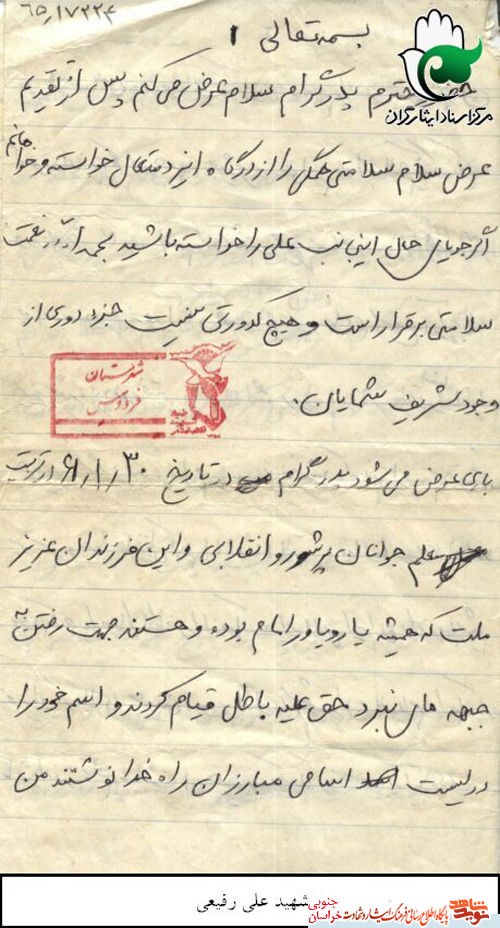 ۶۵٫۱۷۲۲۴
بسمه تعالی ۱
مرکز اسناد ایثارگران
محترم پدر گرام سلام عرض می کنم پس از تقدیم
عرض سلام سلامتی همگی را از درگاه ایزد متعال خواسته و خواهانم
اگر جویای حال اینجانب علی را خواسته باشید بحمدالله نعمت
سلامتی برقرار است و هیچ کدورتی نیست جزء دوری از
وجود شریف شمایان.
شهرستان
فردوس
باری عرض می شود پدر گرام در تاریخ ۶۱/۱/۳۰ در تربت
جوانان پرشور و انقلابی و این فرزندان عزیز
ملت که همیشه یار و یاور امام بوده و هستند جهت رفتن به
جبهه های نبرد حق علیه باطل قیام کردند و اسم خود را
در لیست اسامی مبارزان راه خدا نوشتند من
شهید علی رفیعی
نوید شاهد
پایگاه اطلاع رسانی فرهنگ ایثار و شهادت
خراسان جنوبی